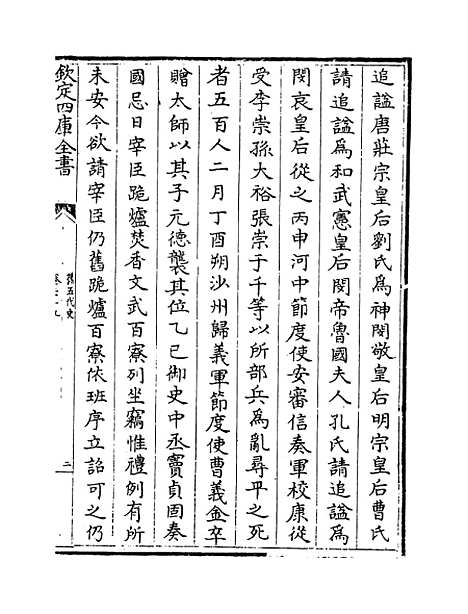 追諡唐莊宗皇后劉氏為神閔敬皇后明宗皇后曹氏
請追諡為和武憲皇后閔帝魯國夫人孔氏請追諡為
閔哀皇后從之丙申河中節度使安審信奏軍校康從
受李崇孫大裕張崇于千等以所部兵為亂尋平之死
者五百人二月丁酉朔沙州歸義軍節度使曹義金卒
贈太師以其子元德襲其位乙巳御史中丞竇貞固奏
國忌日宰臣跪爐焚香文武百寮列坐竊惟禮例有所
未安今欲請宰臣仍舊跪爐百寮依班序立詔可之仍
欽定四庫全書
舊五代史
卷七十九
二